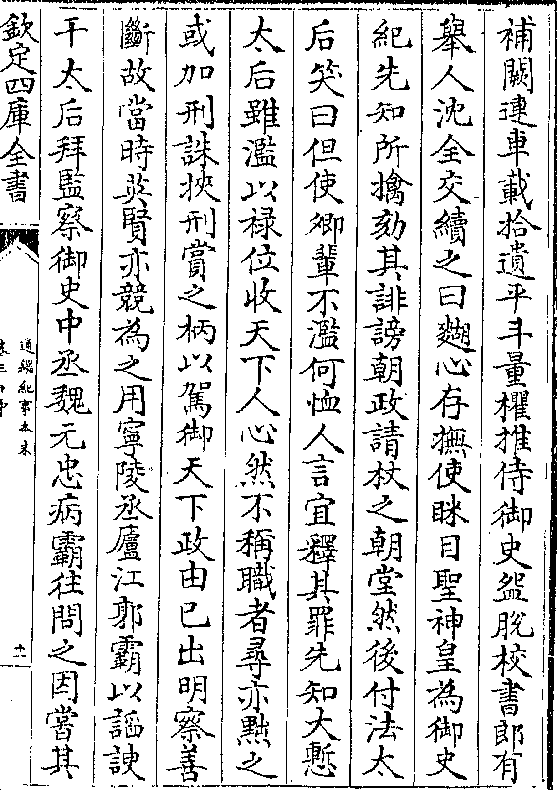 補闕連車載拾遺平斗量欋推侍御史盌脫校書郎有
舉人沈全交續之曰𪍿心存撫使眯目聖神皇為御史
紀先知所擒劾其誹謗朝政請杖之朝堂然後付法太
后笑曰但使卿輩不濫何恤人言宜釋其罪先知大慙
太后雖濫以禄位收天下人心然不稱職者尋亦黜之
或加刑誅挾刑賞之柄以駕御天下政由已出明察善
斷故當時英賢亦競為之用寧陵丞廬江郭霸以謟諛
干太后拜監察御史中丞魏元忠病霸往問之因嘗其
欽定四庫全書
通鑑紀事本末
卷三十
十一